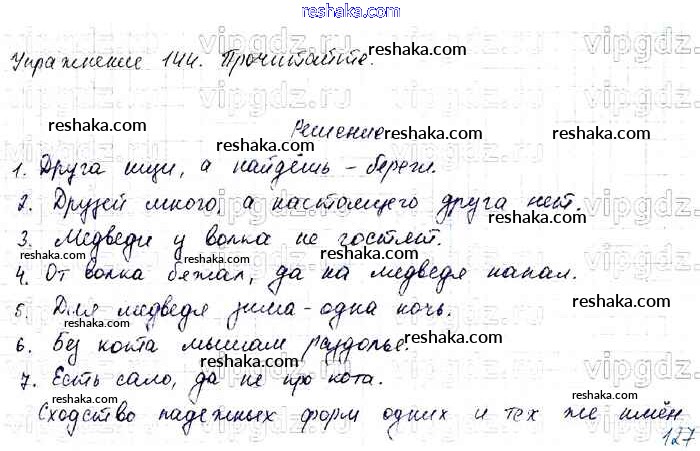 reshaka.com
Упражнение 144. Прочитайте.
Решение
1. Друга ищи, а найдёшь - береги.
2. Друзей много, а настоящего друга нет.
3. Медведи у волка не гостят.
4. От волка бежал, да на медведя напал.
5. Для медведя зима - одна ночь.
6. Без кота мышам раздолье.
7. Есть сало, да не про кота.
Сходство падежных форм одних и тех же имён
127